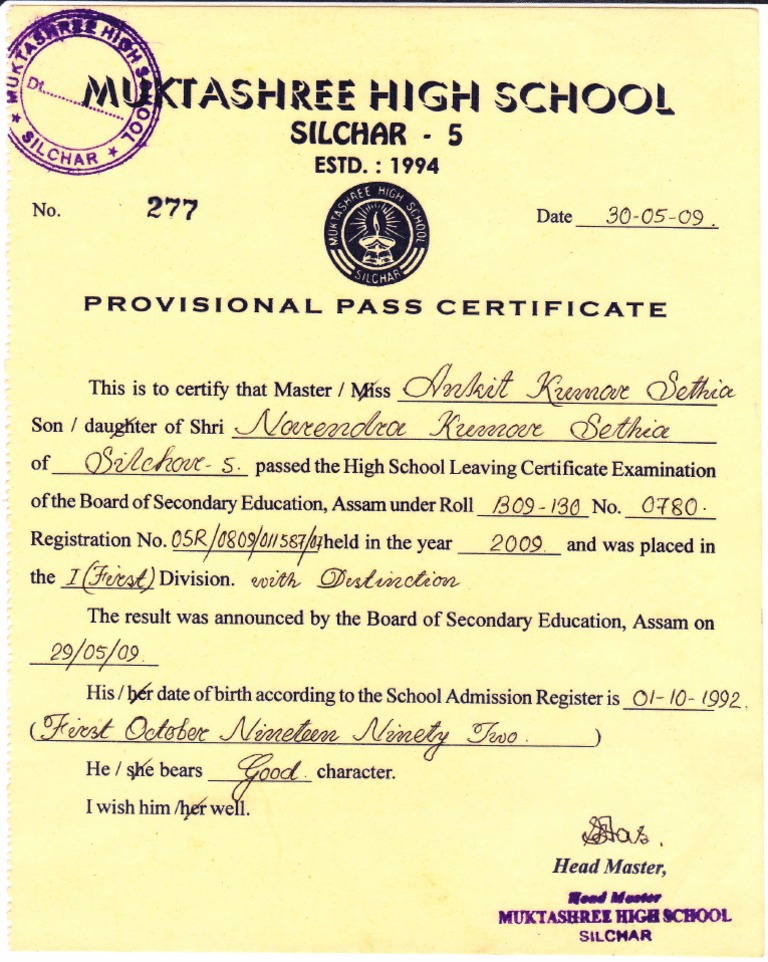 MUKTASHREE HIGH SCHOOL
Dt..................
★ SILCHAR ★
MUKTASHREE HIGH SCHOOL
SILCHAR - 5
ESTD. : 1994
No. 277
Date 30-05-09.
MUKTASHREE HIGH SCHOOL
SILCHAR
PROVISIONAL PASS CERTIFICATE
This is to certify that Master / Miss Ankit Kumar Sethia
Son / daughter of Shri Narendra Kumar Sethia
of Silchar-5. passed the High School Leaving Certificate Examination
of the Board of Secondary Education, Assam under Roll B09-130 No. 0780.
Registration No. 05R/0809/011587/07 held in the year 2009 and was placed in
the I (First) Division. with Distinction
The result was announced by the Board of Secondary Education, Assam on
29/05/09.
His / her date of birth according to the School Admission Register is 01-10-1992.
(First October Nineteen Ninety Two. )
He / she bears Good. character.
I wish him /her well.
Head Master,
Head Master
MUKTASHREE HIGH SCHOOL
SILCHAR